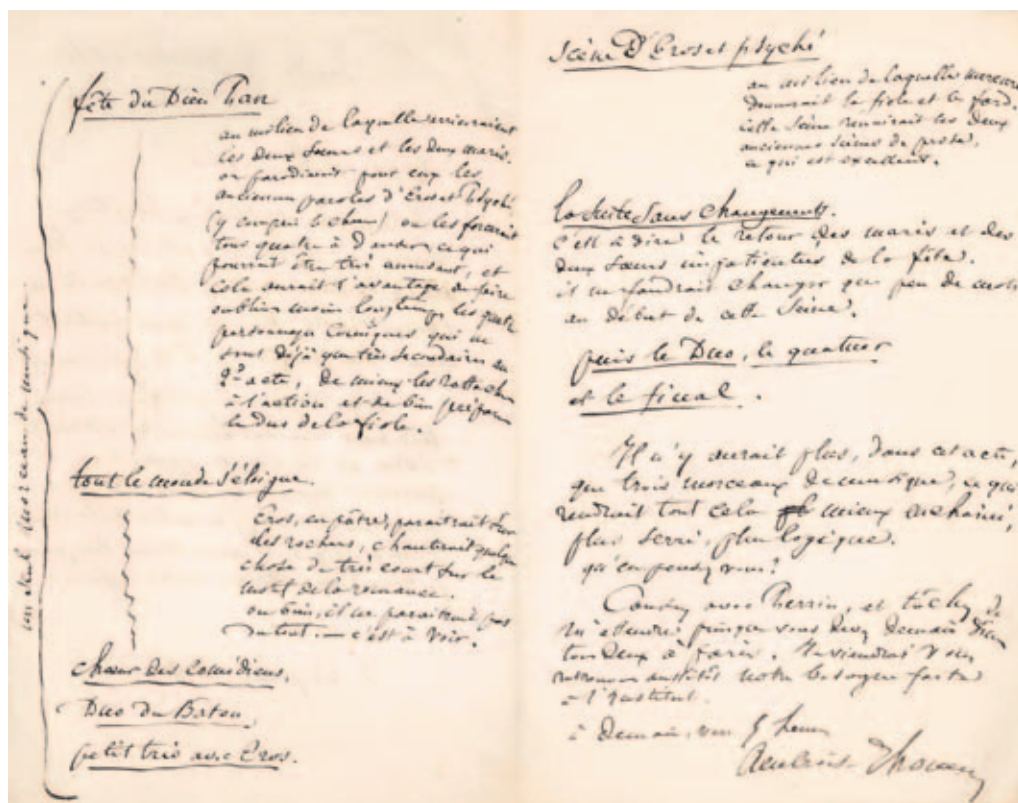 un seul morceau de musique.
fête du Dieu Pan
au milieu de laquelle arriveraient
les deux Sœurs et les deux maris.
on parodierait pour eux les
anciennes paroles d'Eros et Psyché,
(y compris le chœur) on les forcerait
tous quatre à danser, ce qui
pourrait être très amusant, et
cela aurait l'avantage de faire
oublier moins longtemps les quatre
personnages comiques qui ne
sont déjà que très secondaires au
2e acte, de mieux les rattacher
à l'action et de bien préparer
le duo de la fiole.
tout le monde s'éloigne.
Eros, en pâtre, paraîtrait sur
des rochers, chanterait quelque
chose de très court sur le
motif de la romance.
ou bien, il ne paraîtrait pas
du tout. — c'est à voir.
chœur des Comédiens.
Duo du Baton
petit trio avec Eros.
Scène D'Eros et psyché
au milieu de laquelle mercure
donnerait la fiole et le fard.
cette Scène réunirait les deux
anciennes Scènes de prose,
ce qui est excellent.
la Suite Sans changements.
c'est à dire le retour des maris et des
deux Sœurs impatientés de la fête.
il ne faudrait changer que peu de mots
au début de cette Scène.
puis le Duo, le quatuor
et le final.
Il n'y aurait plus, dans cet acte,
que trois morceaux de musique, ce qui
rendrait tout cela mieux enchainé,
plus serré, plus logique.
qu'en pensez vous?
Causez avec Perrin, et tâchez de
m'attendre puisque vous dinez demain
tous Deux à Paris. Je viendrai vous
retrouver aussitôt notre besogne faite
à l'institut.
à Demain, vers 5 heures
Ambroise Thomas